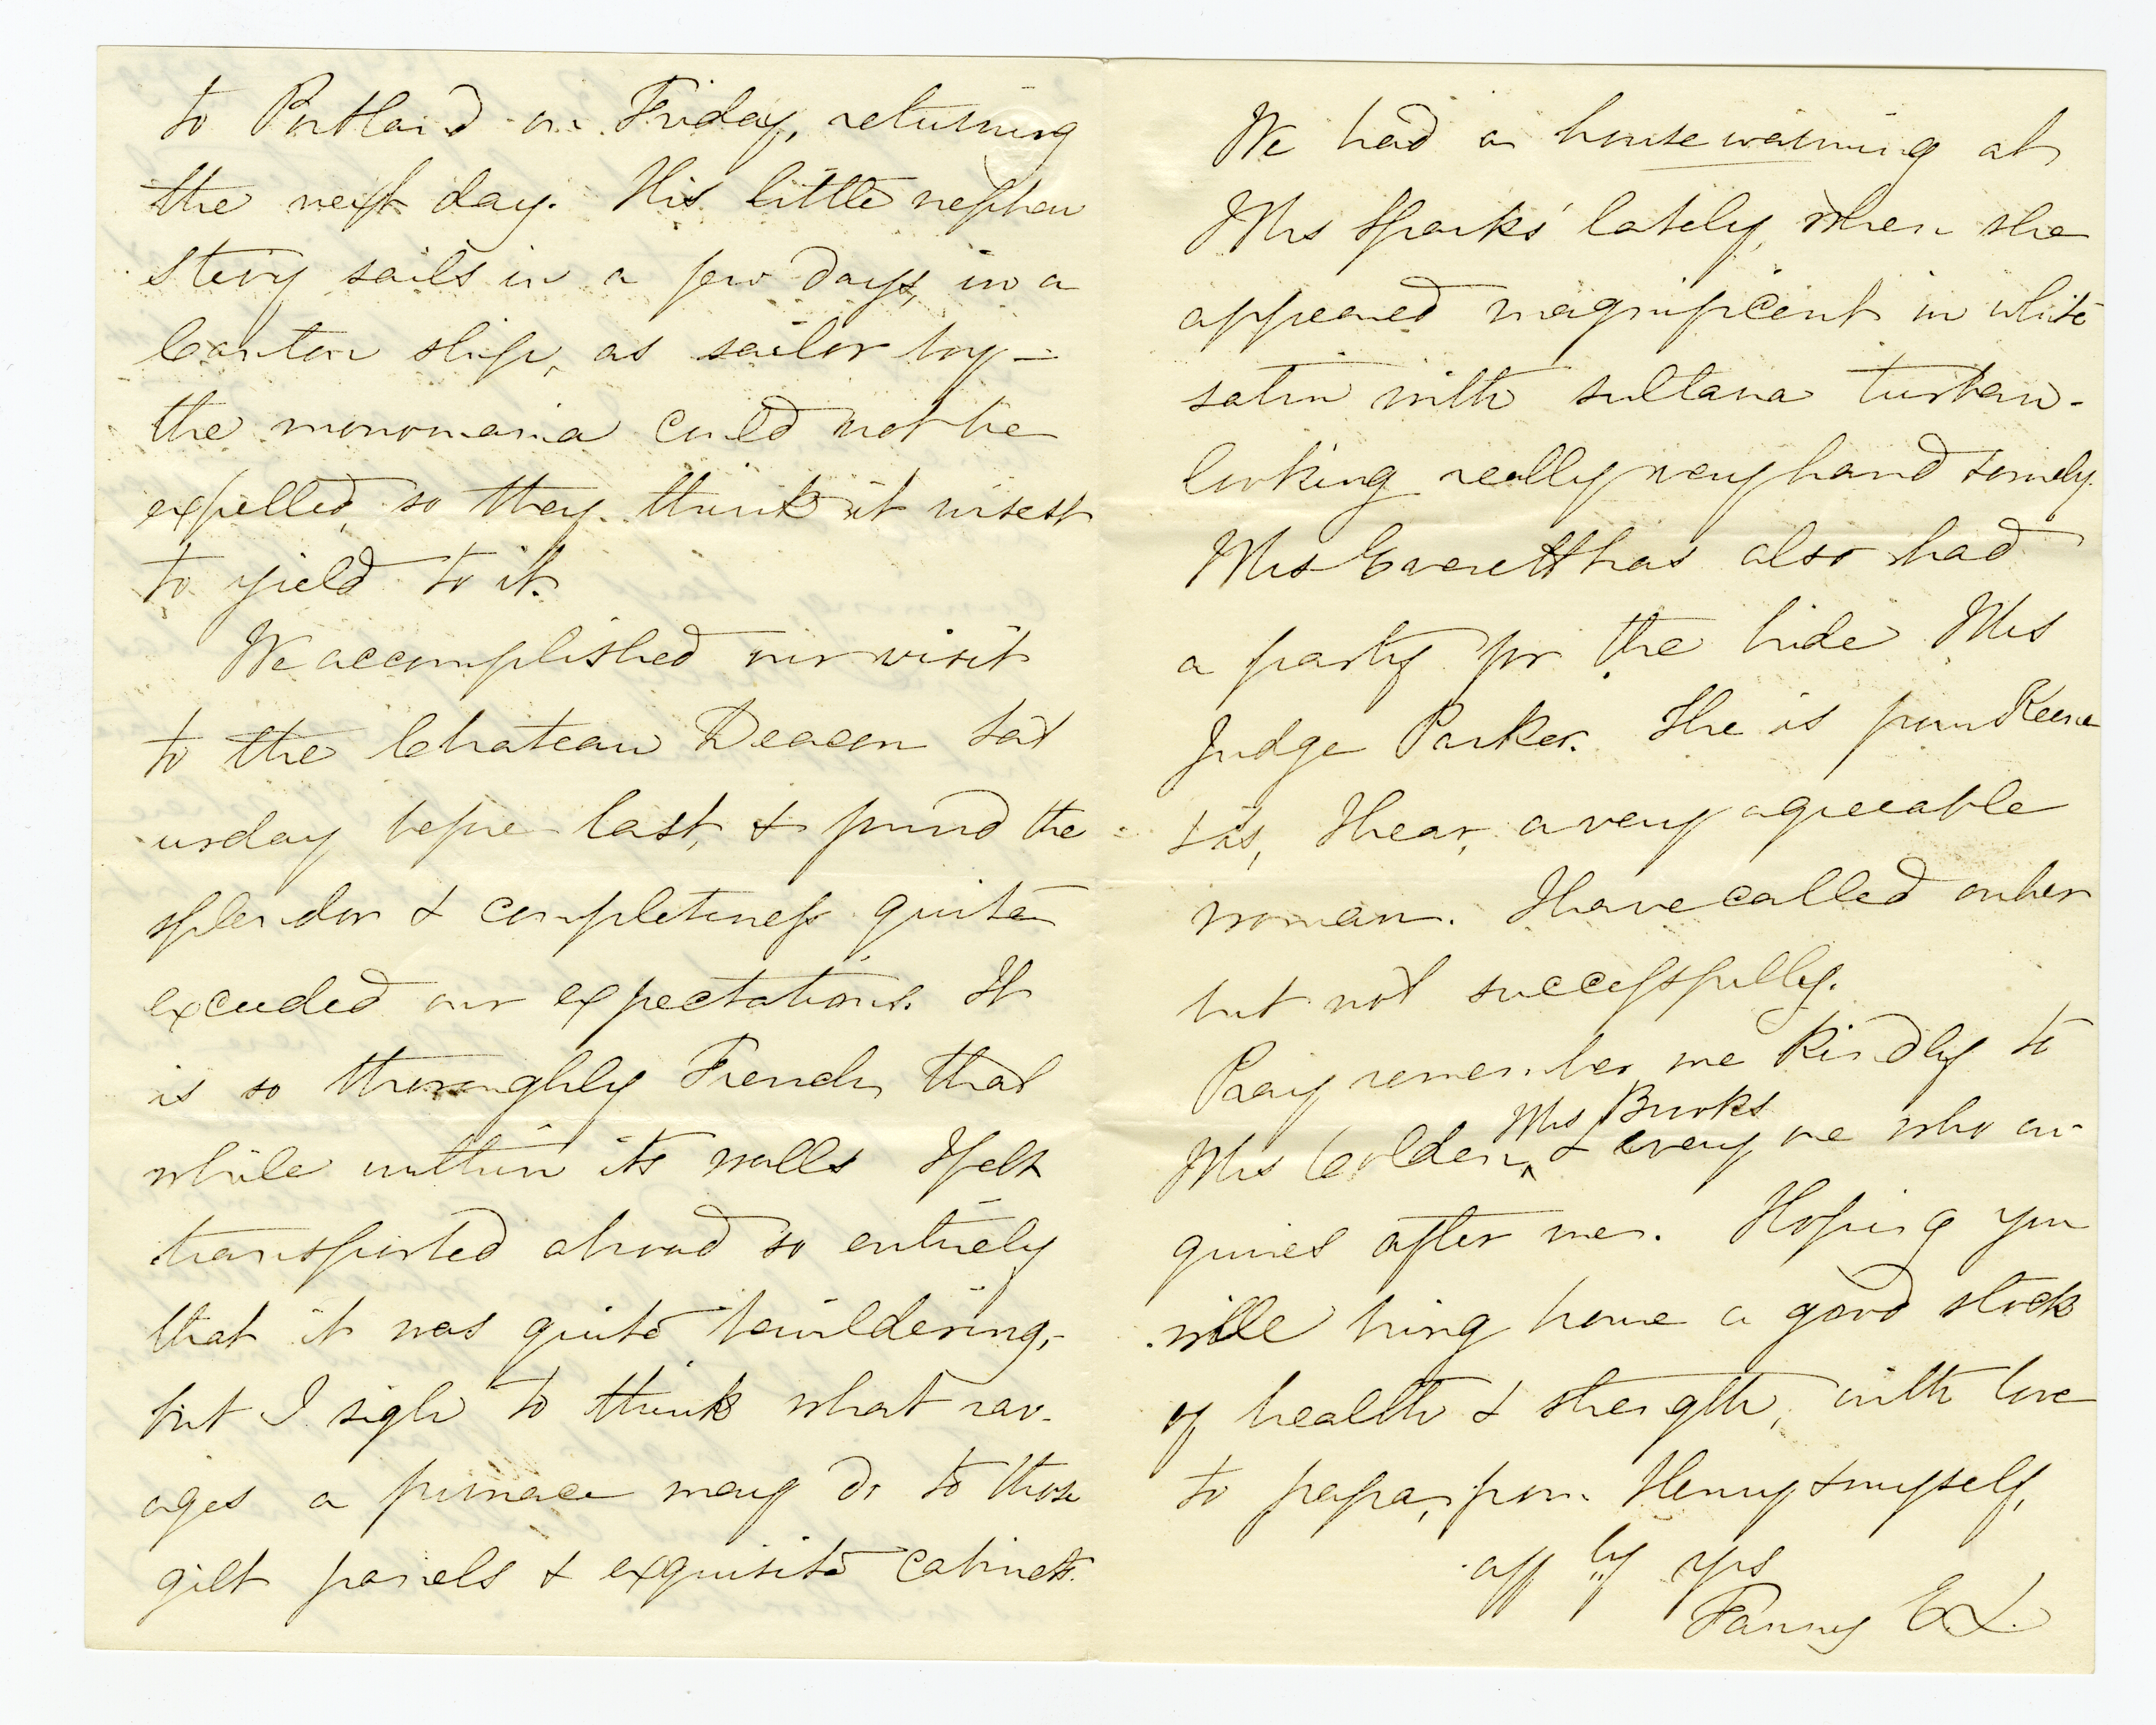 to Portland on Friday, returning
the next day. His little nephew
Stevy sails in a few days, in a
Canton ship, as sailor boy –
the monomania could not be
expelled, so they think it wisest
to yield to it.
We accomplished our visit
to the Chateau Deacon Sat
urday before last, & found the
splendor & completeness quite
exceeded our expectations. It
is so thoroughly French that
while within its walls I felt
transported abroad so entirely
that it was quite bewildering,
but I sigh to think what rav-
ages a furnace may do to those
gilt panels & exquisite cabinets.
We had a housewarming at
Mrs Sparks' lately, when she
appeared magnificent in white
satin with sultana turban –
looking really very handsomely.
Mrs Everett has also had
a party for the bride Mrs
Judge Parker. She is from Keene
& is, I hear, a very agreeable
woman. I have called on her
but not successfully.
Pray remember me kindly to
Mrs Colden, ^ Mrs Brooks & every one who en-
quires after me. Hoping you
will bring home a good stock
of health & strength, with love
to papa, from Henry & myself,
aff ly yrs
Fanny E L.